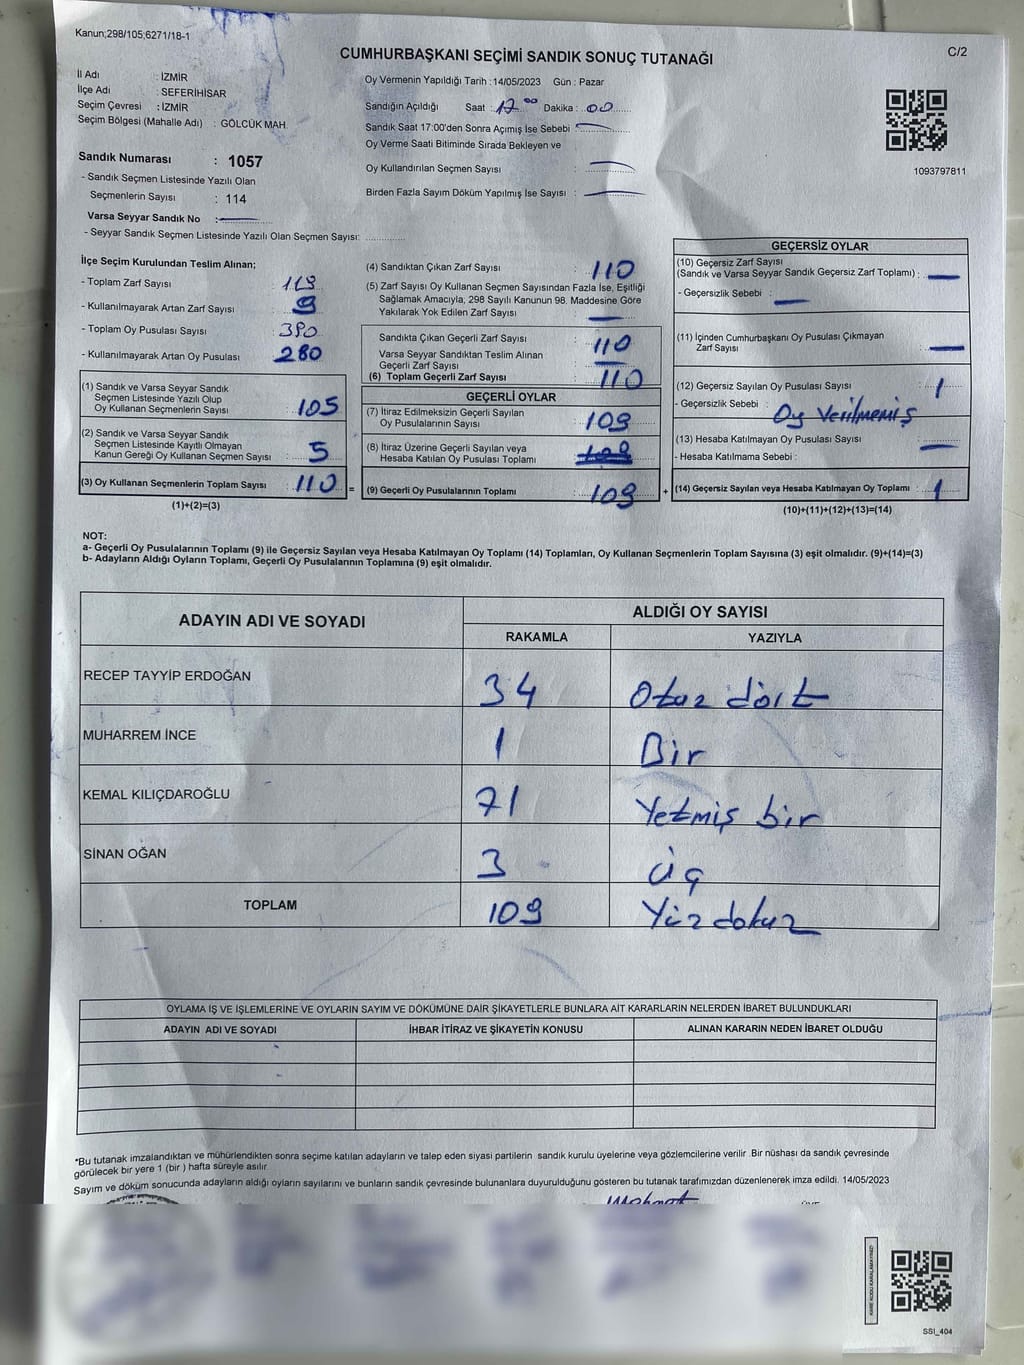 Kanun;298/105;6271/18-1
C/2
CUMHURBAŞKANI SEÇİMİ SANDIK SONUÇ TUTANAĞI
İl Adı : İZMİR
İlçe Adı : SEFERİHİSAR
Seçim Çevresi : İZMİR
Seçim Bölgesi (Mahalle Adı) : GÖLCÜK MAH.
Sandık Numarası : 1057
- Sandık Seçmen Listesinde Yazılı Olan
Seçmenlerin Sayısı : 114
Varsa Seyyar Sandık No :
- Seyyar Sandık Seçmen Listesinde Yazılı Olan Seçmen Sayısı:
Oy Vermenin Yapıldığı Tarih :14/05/2023 Gün : Pazar
Sandığın Açıldığı Saat : 17.00 Dakika : 00
Sandık Saat 17:00'den Sonra Açımış İse Sebebi :
Oy Verme Saati Bitiminde Sırada Bekleyen ve
Oy Kullandırılan Seçmen Sayısı :
Birden Fazla Sayım Döküm Yapılmış İse Sayısı :
1093797811
İlçe Seçim Kurulundan Teslim Alınan;
- Toplam Zarf Sayısı : 119
- Kullanılmayarak Artan Zarf Sayısı : 9
- Toplam Oy Pusulası Sayısı : 390
- Kullanılmayarak Artan Oy Pusulası : 280
(1) Sandık ve Varsa Seyyar Sandık
Seçmen Listesinde Yazılı Olup
Oy Kullanan Seçmenlerin Sayısı : 105
(2) Sandık ve Varsa Seyyar Sandık
Seçmen Listesinde Kayıtlı Olmayan
Kanun Gereği Oy Kullanan Seçmen Sayısı : 5
(3) Oy Kullanan Seçmenlerin Toplam Sayısı : 110 =
(1)+(2)=(3)
(4) Sandıktan Çıkan Zarf Sayısı : 110
(5) Zarf Sayısı Oy Kullanan Seçmen Sayısından Fazla İse, Eşitliği
Sağlamak Amacıyla, 298 Sayılı Kanunun 98. Maddesine Göre
Yakılarak Yok Edilen Zarf Sayısı :
Sandıkta Çıkan Geçerli Zarf Sayısı : 110
Varsa Seyyar Sandıktan Teslim Alınan
Geçerli Zarf Sayısı :
(6) Toplam Geçerli Zarf Sayısı : 110
GEÇERLİ OYLAR
(7) İtiraz Edilmeksizin Geçerli Sayılan
Oy Pusulalarının Sayısı : 109
(8) İtiraz Üzerine Geçerli Sayılan veya
Hesaba Katılan Oy Pusulası Toplamı :
(9) Geçerli Oy Pusulalarının Toplamı : 109 +
GEÇERSİZ OYLAR
(10) Geçersiz Zarf Sayısı
(Sandık ve Varsa Seyyar Sandık Geçersiz Zarf Toplamı) :
- Geçersizlik Sebebi :
(11) İçinden Cumhurbaşkanı Oy Pusulası Çıkmayan
Zarf Sayısı :
(12) Geçersiz Sayılan Oy Pusulası Sayısı : 1
- Geçersizlik Sebebi : Oy Verilmemiş
(13) Hesaba Katılmayan Oy Pusulası Sayısı :
- Hesaba Katılmama Sebebi :
(14) Geçersiz Sayılan veya Hesaba Katılmayan Oy Toplamı : 1
(10)+(11)+(12)+(13)=(14)
NOT:
a- Geçerli Oy Pusulalarının Toplamı (9) ile Geçersiz Sayılan veya Hesaba Katılmayan Oy Toplamı (14) Toplamları, Oy Kullanan Seçmenlerin Toplam Sayısına (3) eşit olmalıdır. (9)+(14)=(3)
b- Adayların Aldığı Oyların Toplamı, Geçerli Oy Pusulalarının Toplamına (9) eşit olmalıdır.
ADAYIN ADI VE SOYADI
ALDIĞI OY SAYISI
RAKAMLA YAZIYLA
RECEP TAYYİP ERDOĞAN 34 Otuz dört
MUHARREM İNCE 1 Bir
KEMAL KILIÇDAROĞLU 71 Yetmiş bir
SİNAN OĞAN 3 üç
TOPLAM 109 Yüz dokuz
OYLAMA İŞ VE İŞLEMLERİNE VE OYLARIN SAYIM VE DÖKÜMÜNE DAİR ŞİKAYETLERLE BUNLARA AİT KARARLARIN NELERDEN İBARET BULUNDUKLARI
ADAYIN ADI VE SOYADI İHBAR İTİRAZ VE ŞİKAYETİN KONUSU ALINAN KARARIN NEDEN İBARET OLDUĞU
*Bu tutanak imzalandıktan ve mühürlendikten sonra seçime katılan adayların ve talep eden siyasi partilerin sandık kurulu üyelerine veya gözlemcilerine verilir .Bir nüshası da sandık çevresinde
görülecek bir yere 1 (bir ) hafta süreyle asılır.
Sayım ve döküm sonucunda adayların aldığı oyların sayılarını ve bunların sandık çevresinde bulunanlara duyurulduğunu gösteren bu tutanak tarafımızdan düzenlenerek imza edildi. 14/05/2023
SSI_404